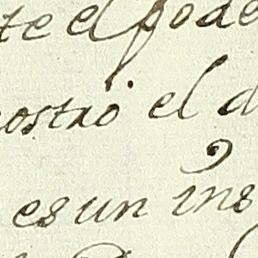 te el pode
ostrò el d
es un ins